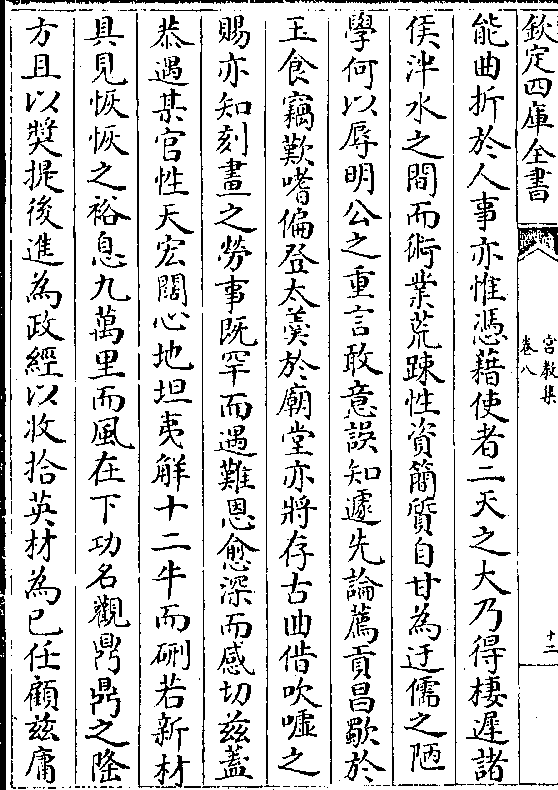 欽定四庫全書
宮教集
卷八
十二
能曲折於人事亦惟憑藉使者二天之大乃得棲遲諸
侯泮水之間而術業荒踈性資簡質自甘為迂儒之陋
學何以辱明公之重言敢意誤知遽先論薦貢昌歜於
玉食竊歎嗜偏登太羮於廟堂亦將存古曲借吹噓之
賜亦知刻畫之勞事既罕而遇難恩愈深而感切茲葢
恭遇某官性天宏闊心地坦夷解十二牛而硎若新材
具見恢恢之裕息九萬里而風在下功名觀鼎鼎之隆
方且以奬提後進為政經以收拾英材為已任顧兹庸